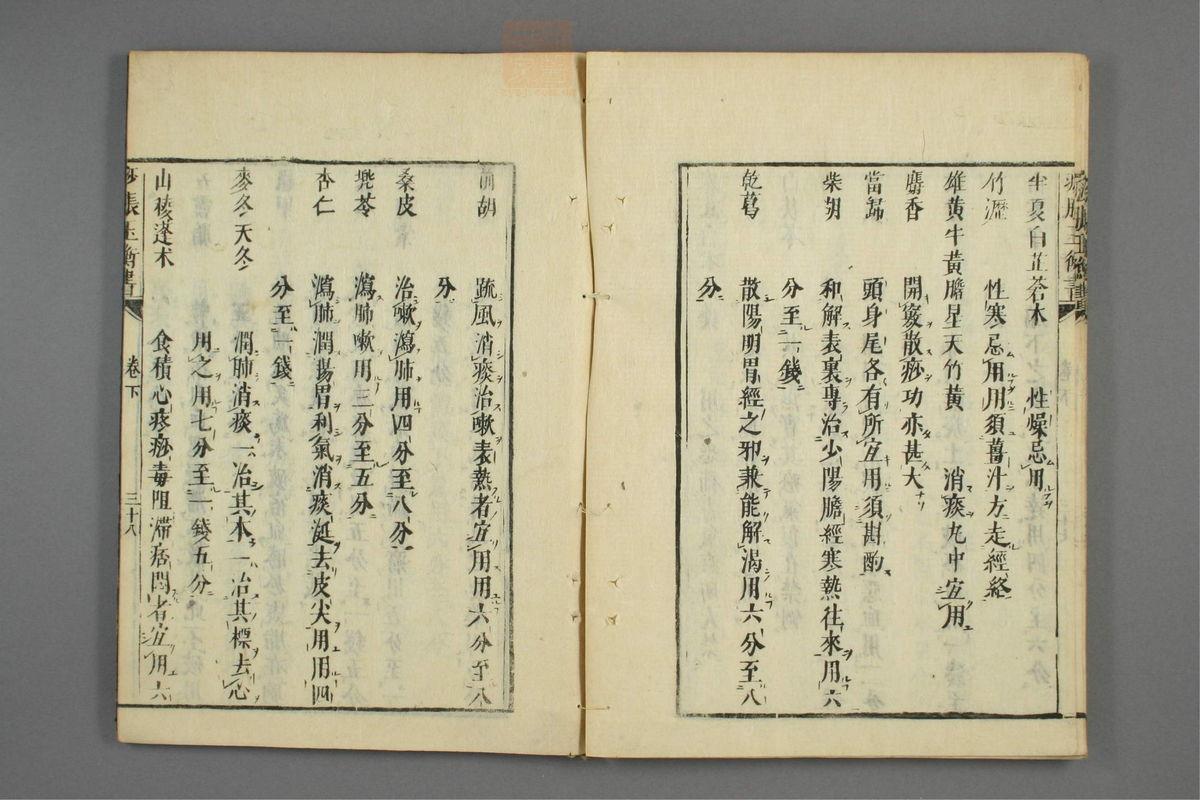 半夏白芷蒼朮　性燥忌用
竹瀝　性寒忌用用須薑汁方走經絡
雄黃牛黃膽星天竹黃　消痰丸中宜用
麝香　開竅散痧功亦甚大
當歸　頭身尾各有所宜用須斟酌
柴胡　和解表裏專治少陽膽經寒熱往來用六
分至一錢
乾葛　散陽明胃經之邪兼能解渴用六分至八
分
前胡　疏風消痰治嗽表熱者宜用用六分至八
分
桑皮　治嗽瀉肺用四分至八分
兠苓　瀉肺嗽用三分至五分
杏仁　瀉肺潤腸胃利氣消痰涎去皮尖用用四
分至一錢
麥冬天冬　潤肺消痰一治其本一治其標去心
用之用七分至一錢五分
山稜蓬朮　食積心疼痧毒阻滯痞悶者宜用六
痧脹玉衡書
卷下
三十八